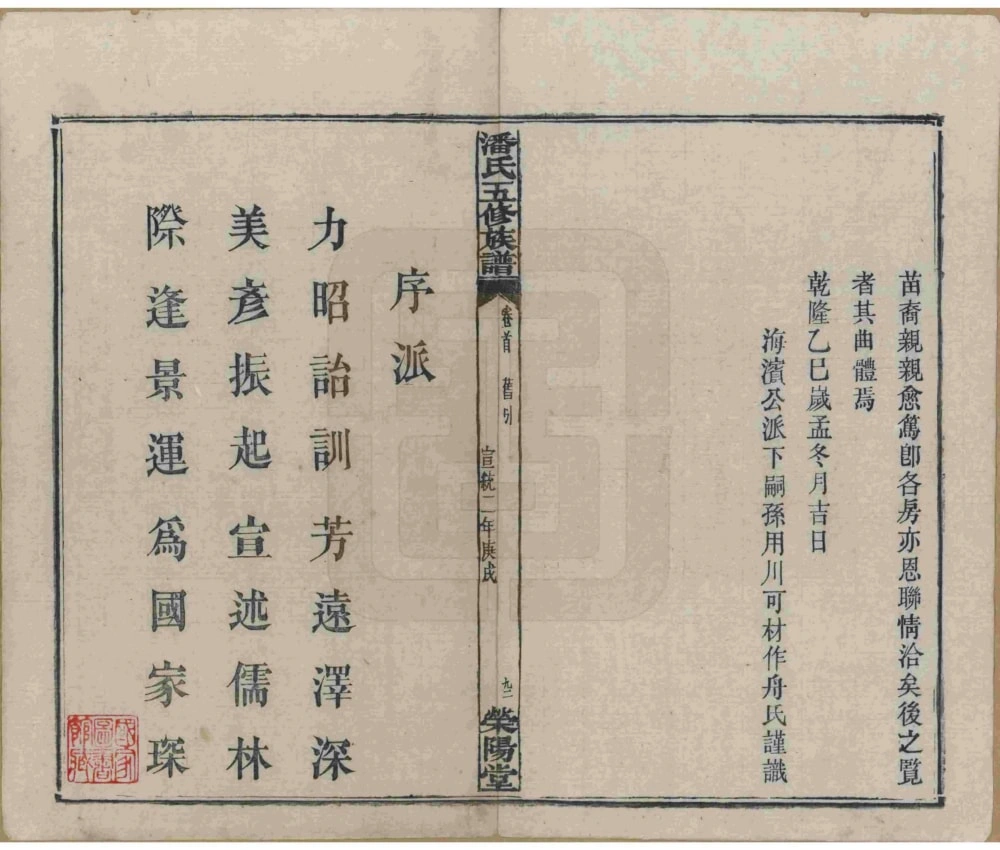 苗裔親親愈篤卽各房亦恩聯情洽矣後之覽
者其曲體焉
乾隆乙巳歲孟冬月吉日
海濱公派下嗣孫用川可材作舟氏謹識
潘氏五修族譜
卷首
舊引
宣統二年庚戌
九二
榮陽堂
序派
力昭詒訓芳遠澤深
美彥振起宣述儒林
際逢景運爲國家琛
國家圖書館藏